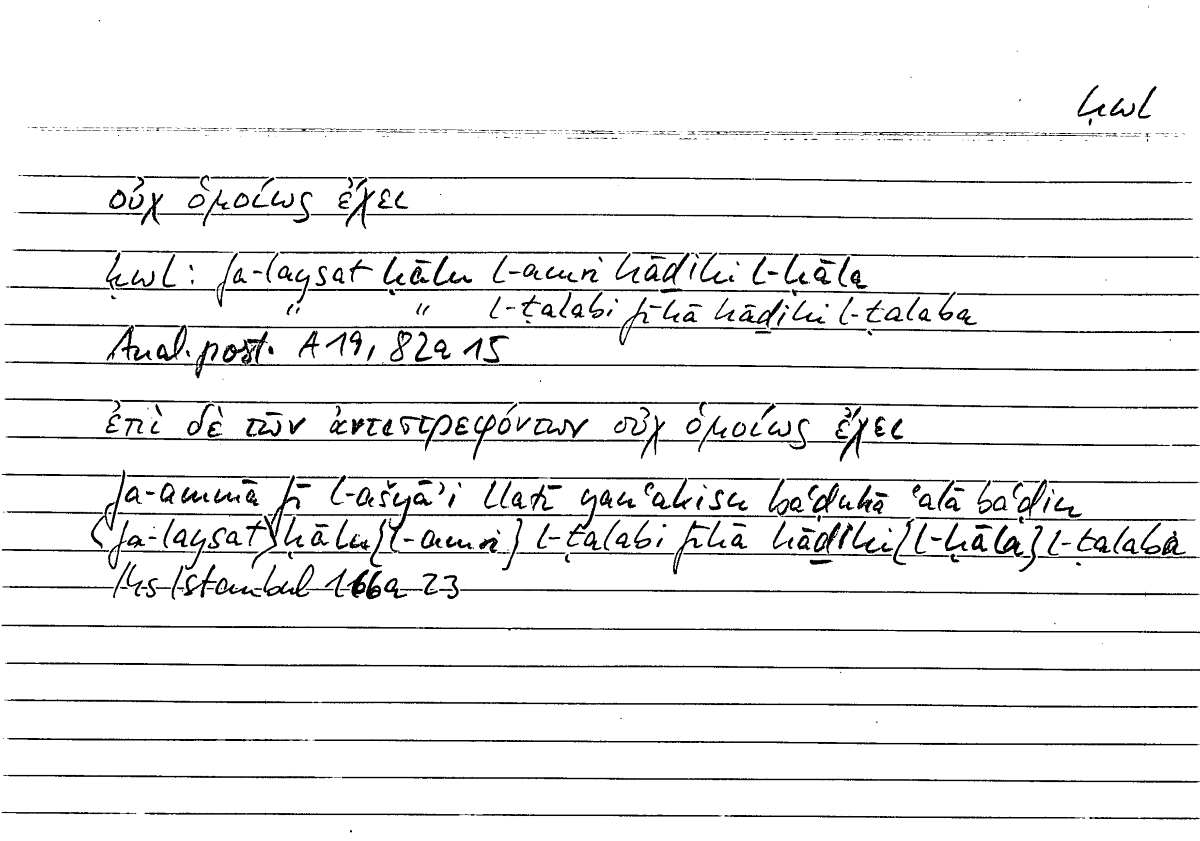 ḥwl
οὐχ ὁμοίως ἔχει
ḥwl: fa-laysat ḥālu l-amri hāḏihi l-ḥāla
" " l-ṭalabi fīhā hāḏihi l-ṭalaba
Anal. post. A 19, 82a 15
ἐπὶ δὲ τῶν ἀντιστρεφόντων οὐχ ὁμοίως ἔχει
fa-ammā fī l-ašyāʾi llatī yanʿakisu baʿḍuhā ʿalā baʿḍin
⟨fa-laysat⟩ ḥālu {l-amri} l-ṭalabi fīhā hāḏihi {l-ḥāla} l-ṭalaba
Hs Istanbul 166a 23